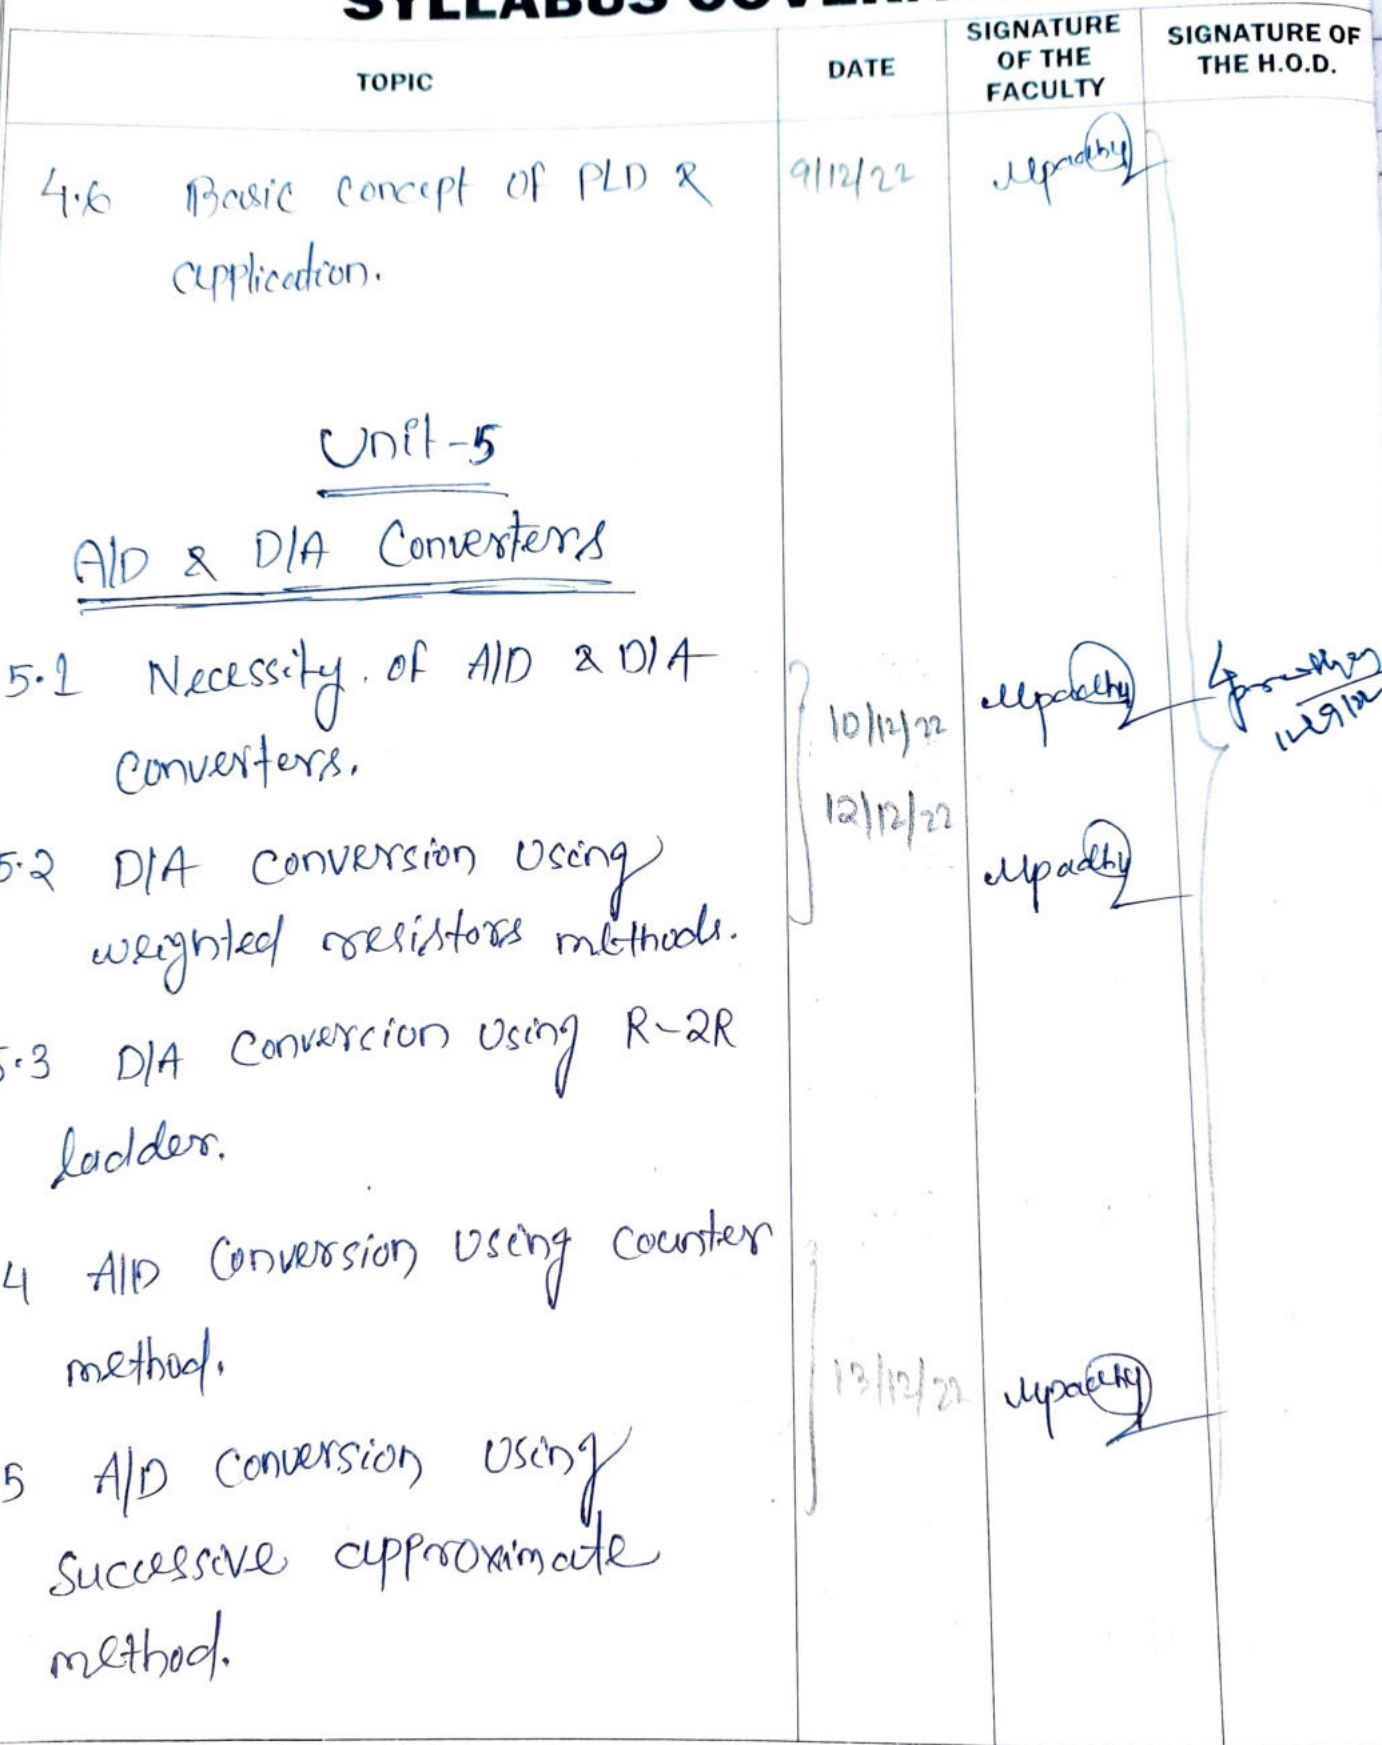 SYLLABUS
TOPIC
DATE
SIGNATURE
OF THE
FACULTY
SIGNATURE OF
THE H.O.D.
4.6 Basic concept of PLD &
application.
9/12/22
Mpadhy
Unit-5
A/D & D/A Converters
5.1 Necessity of A/D & D/A
converters.
10/12/22
Mpadhy
12/12/22
5.2 D/A conversion Using
weighted resistors methods.
Mpadhy
5.3 D/A Convercion Using R-2R
ladder.
4 A/D Conversion Using Counter
method.
13/12/22
Mpadhy
5 A/D Conversion Using
Successive approximate
method.